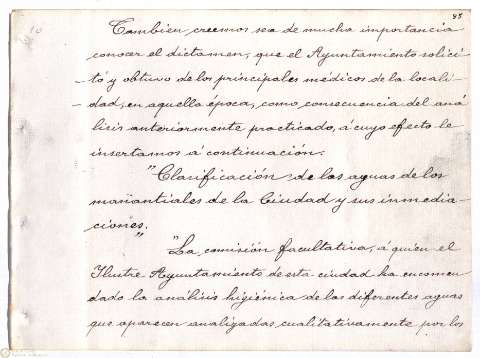 88
Tambien creemos sea de mucha importancia
conocer el dictamen, que el Ayuntamiento solici-
tó y obtuvo de los principales médicos de la locali-
dad, en aquella época, como consecuencia del aná
lisis anteriormente practicado, á cuyo efecto le
insertamos á continuación.
"Clarificación de las aguas de los
manantiales de la Ciudad y sus inmedia-
ciones.
"La comisión facultativa, á quien el
Ilustre Ayuntamiento de esta ciudad ha encomen
dado la análisis higiénica de las diferentes aguas
que aparecen analizadas cualitativamente por los